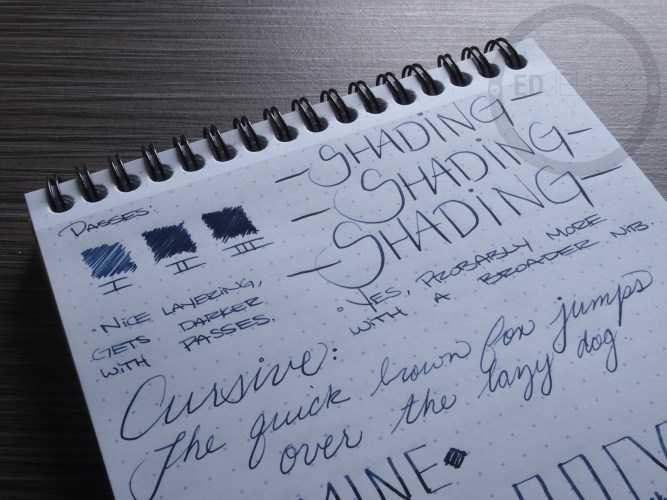 PASSES:
I II III
• NICE LAYERING,
GETS DARKER
WITH PASSES.
—SHADING—
—SHADING—
—SHADING—
• YES, PROBABLY MORE
WITH A BROADER NIB.
Cursive:
The quick brown fox jumps
over the lazy dog